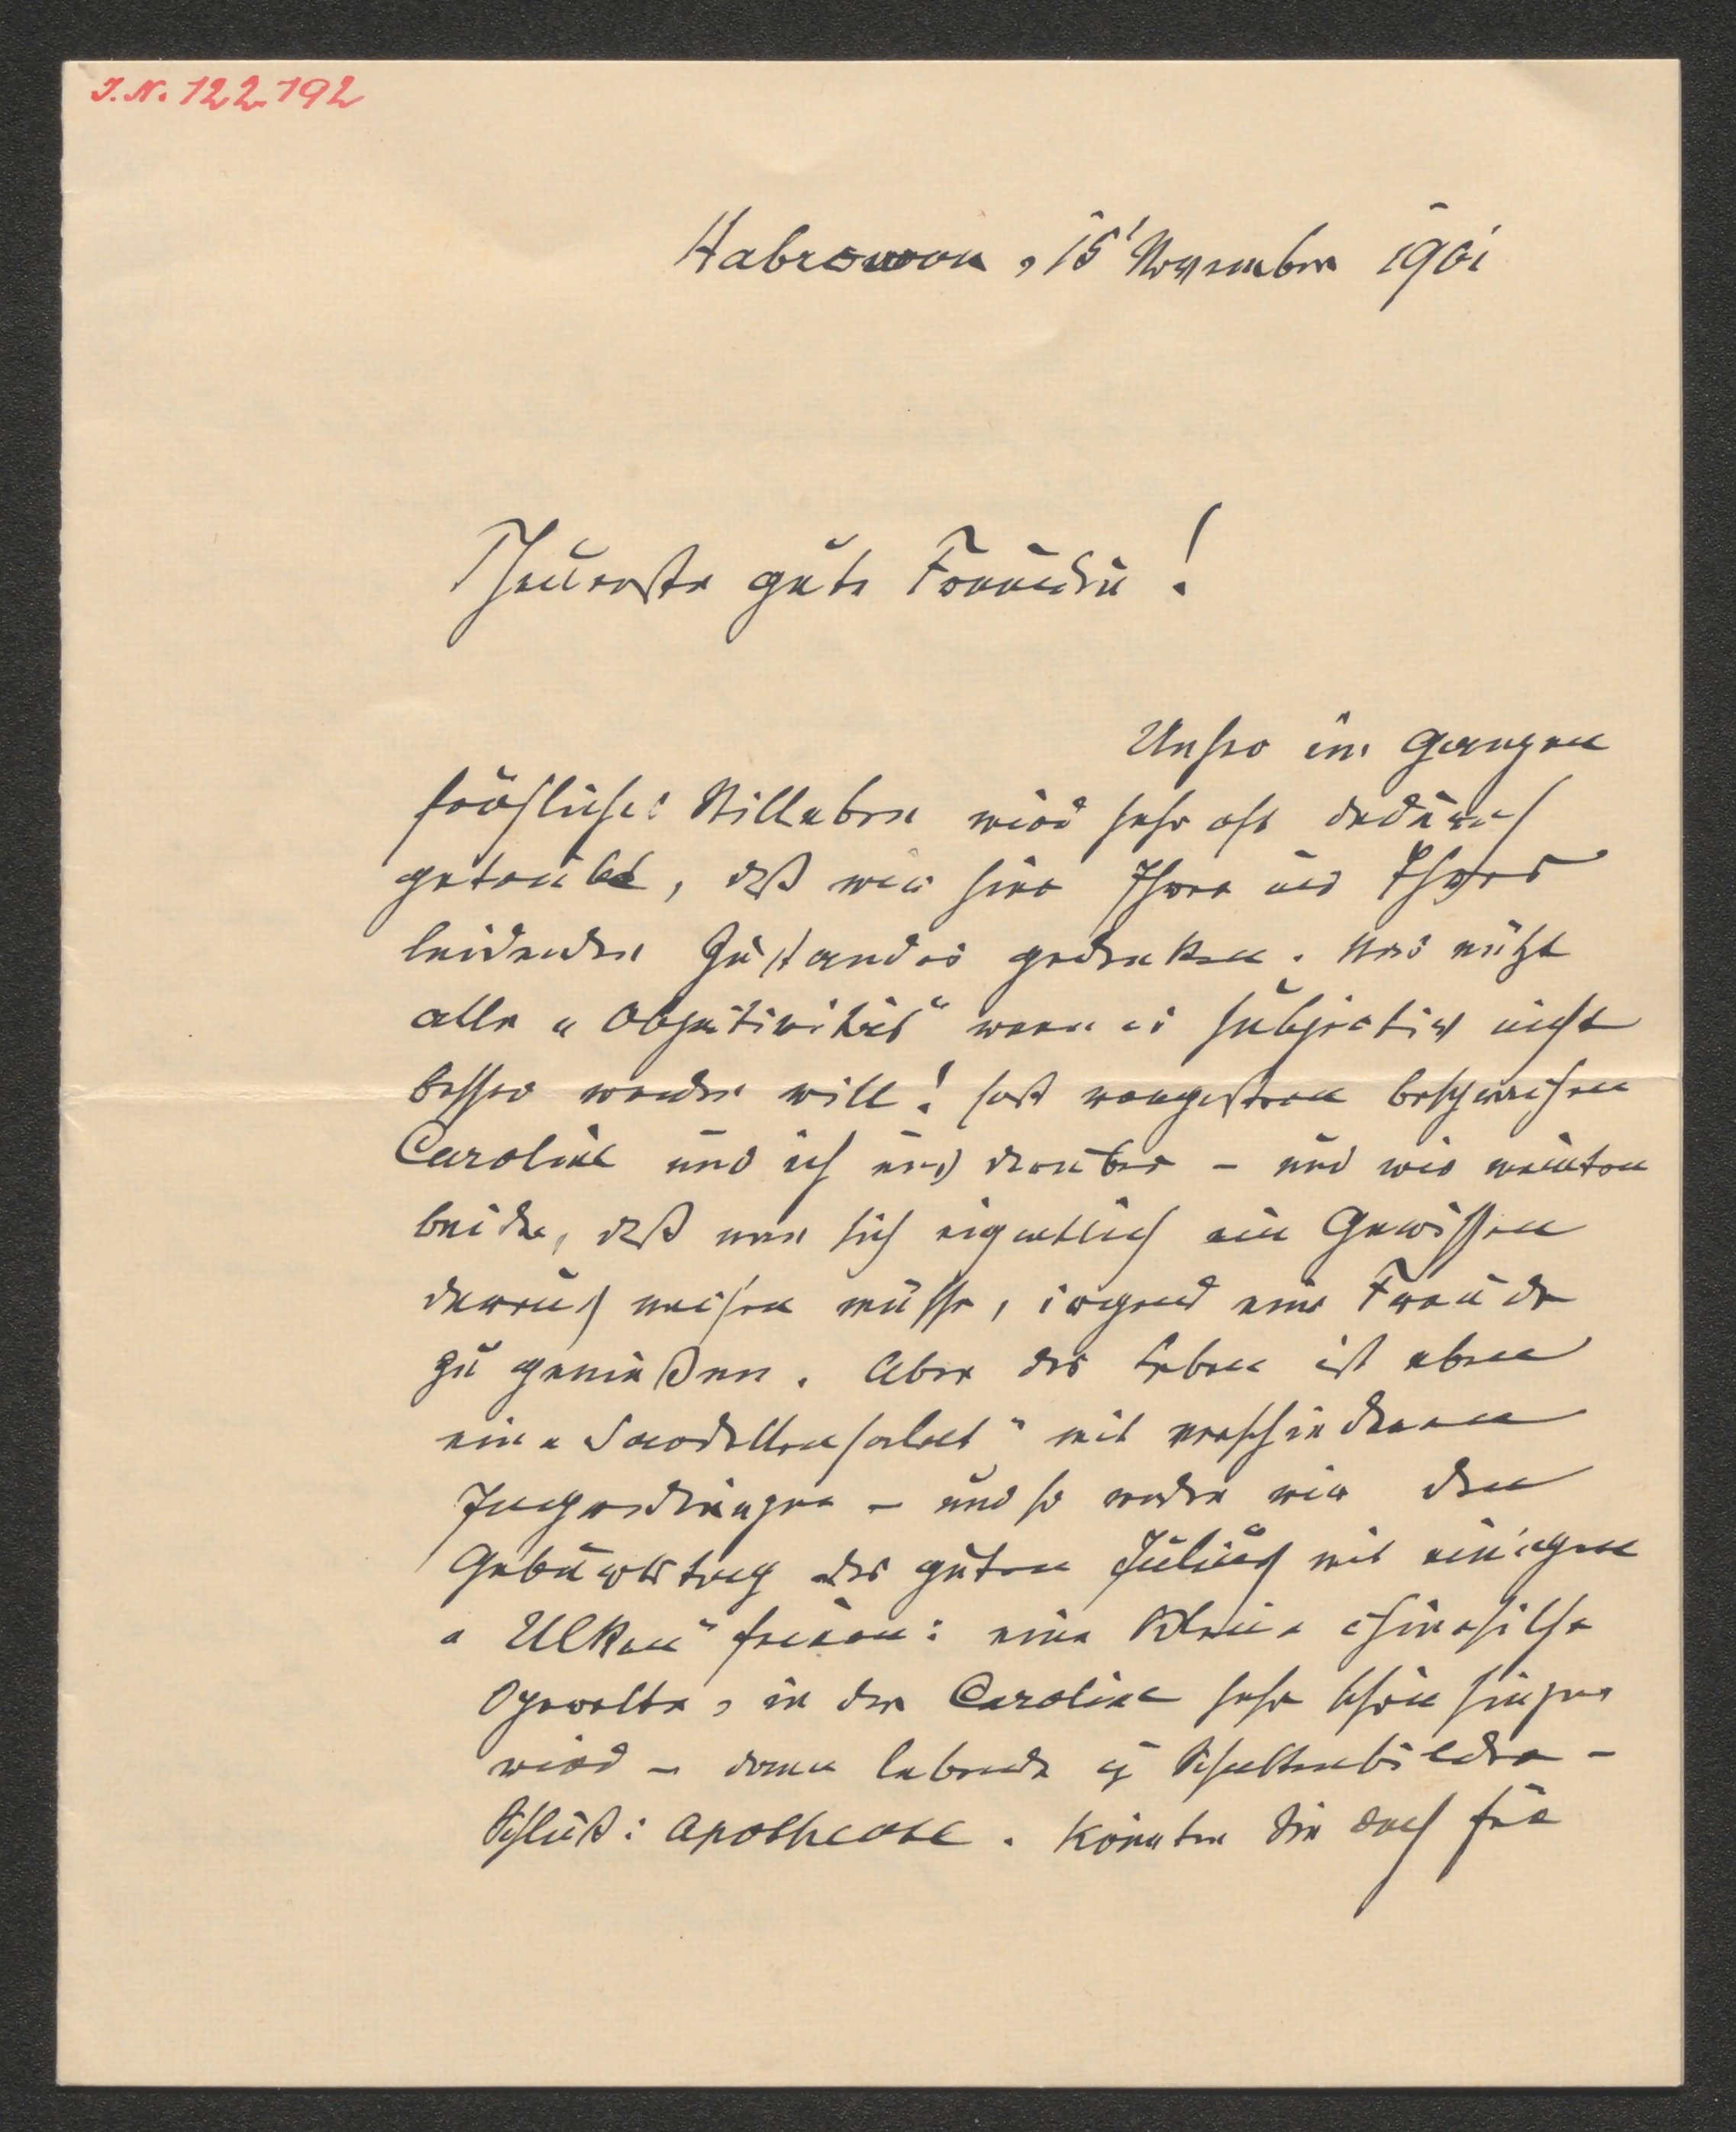 I.N. 122.192
Habrowan, 15' November 1901
Theuerste gute Freundin!
Unser im Ganzen
fröhliches Stilleben wird sehr oft dadurch
getrübt, daß wir hier Ihrer und Ihres
leidenden Zustandes gedenken. Was nützt
alle „Objectivität“ wenn es subjectiv nicht
besser werden will! Erst vorgestern besprachen
Caroline und ich uns darüber – und wir meinten
beide, daß man sich eigentlich ein Gewissen
daraus machen müsse, irgend eine Freude
zu genießen. Aber das Leben ist eben
ein „Sardellensalat“ mit verschiedenen
Ingredienzen – und so werden wir den
Geburtstag des guten Julius mit einigen
„Ulken“ feiern: eine kleine chinesische
Operette, in der Caroline sehr schön singen
wird – dann lebende u Schattenbilder –
Schluß: Apotheose. Könnten Sie doch für